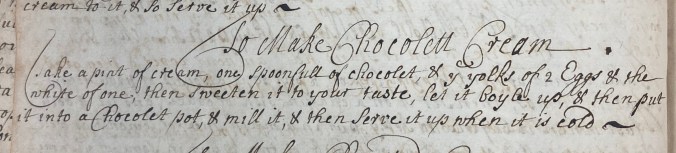 cream to it, & So Serve it up ~
To Make Chocolett Cream .
Take a pint of cream, one Spoonfull of chocolet, & yᵉ yolks of 2 Eggs & the
white of one, then Sweeten it to your taste, let it boyle up, & then put
it into a Chocolet pot, & mill it, & then Serve it up when it is cold ~